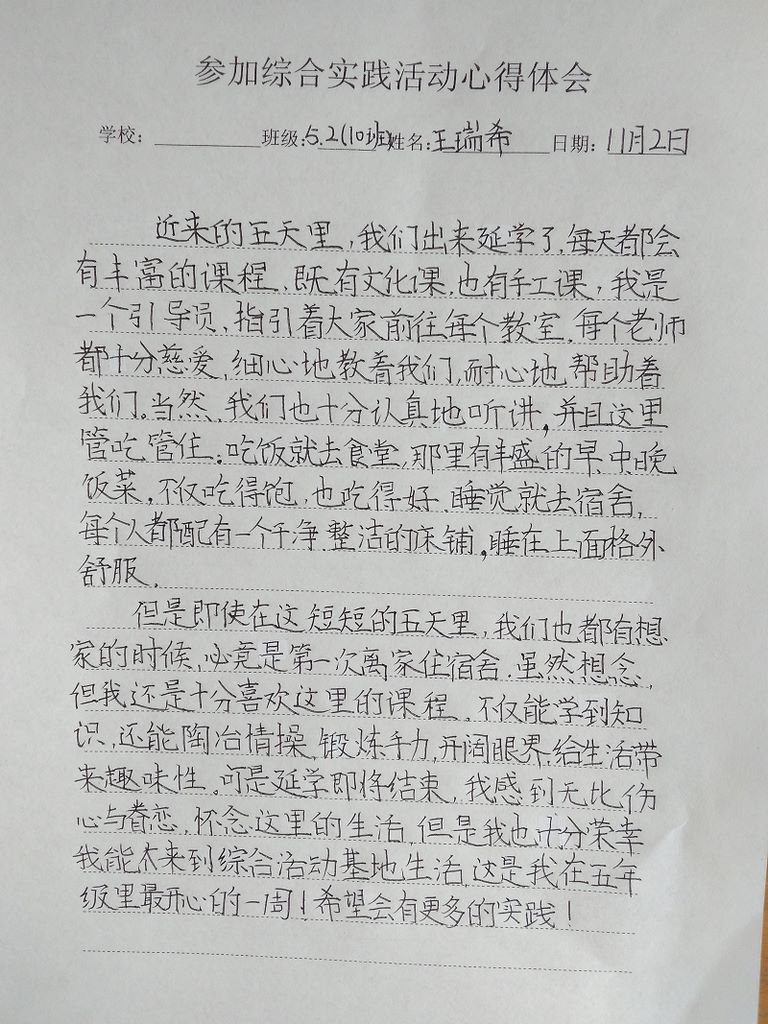 参加综合实践活动心得体会
学校: 班级:5.2(10班)姓名:王瑞希 日期: 11月2日
近来的五天里,我们出来延学了,每天都会
有丰富的课程,既有文化课,也有手工课,我是
一个引导员,指引着大家前往每个教室,每个老师
都十分慈爱,细心地教着我们,耐心地帮助着
我们。当然,我们也十分认真地听讲,并且这里
管吃管住。吃饭就去食堂,那里有丰盛的早、中、晚
饭菜,不仅吃得饱,也吃得好,睡觉就去宿舍,
每个人都配有一个干净整洁的床铺,睡在上面格外
舒服。
但是即使在这短短的五天里,我们也都有想
家的时候,必竟是第一次离家住宿舍,虽然想念,
但我还是十分喜欢这里的课程,不仅能学到知
识,还能陶冶情操,锻炼手力,开阔眼界,给生活带
来趣味性,可是延学即将结束,我感到无比伤
心与眷恋,怀念这里的生活,但是我也十分荣幸
我能来到综合活动基地生活,这是我在五年
级里最开心的一周!希望会有更多的实践!